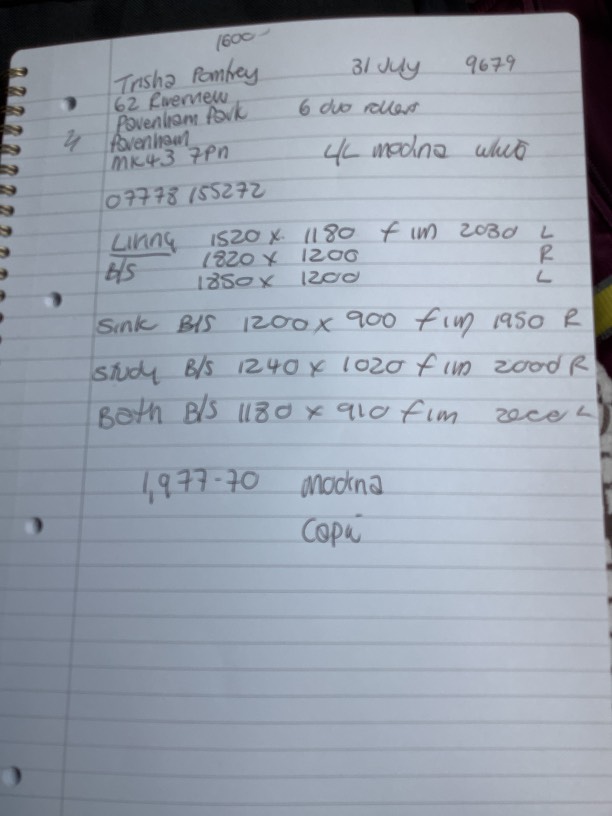 1600-
Trisha Pomfrey 31 July 9679
62 Riverview
Pavenham Park 6 duo rollers
Pavenham
MK43 7Pn L/L modna white
07778 155272
Living 1520 x 1180 fim 2080 L
B/S 1820 x 1200 R
1850 x 1200 L
Sink B/S 1200 x 900 fim 1950 R
Study B/S 1240 x 1020 fim 2000 R
Bath B/S 1180 x 910 fim L
1,977-70 modna